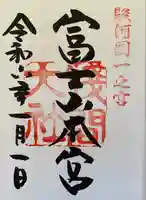 駿河国一之宮
富士山本宮
浅間大社
令和六年一月一日